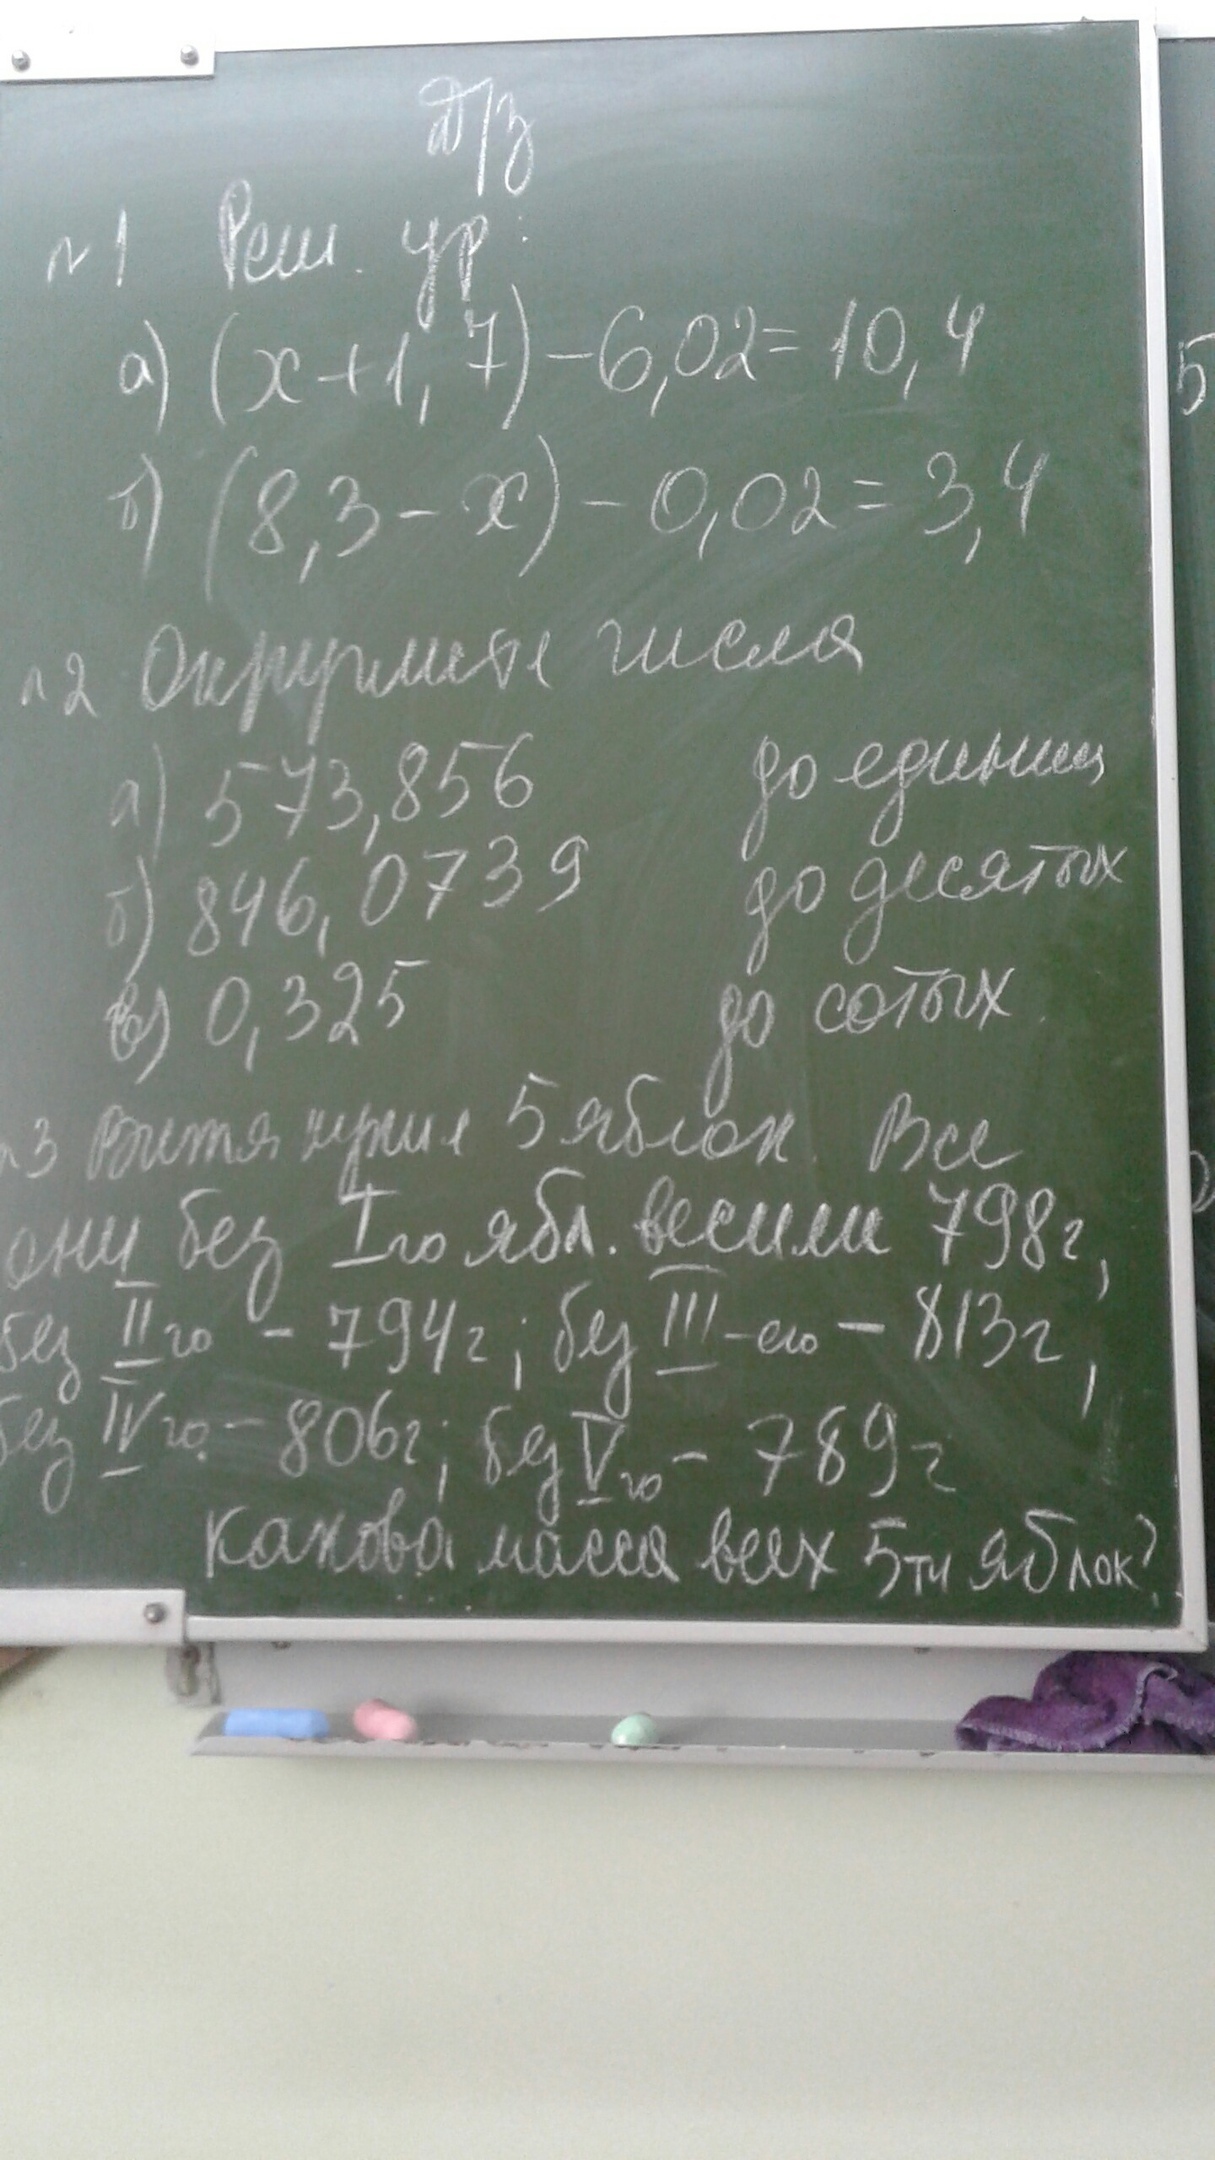 Д/з
№1 Реш. ур:
а) (x+1,7)-6,02=10,4
б) (8,3-x)-0,02=3,4
№2 Округлите числа
а) 573,856 до единиц
б) 846,0739 до десятых
в) 0,325 до сотых
№3 Витя купил 5 яблок Все
они без I го ябл. весили 798г,
без II го - 794г; без III-его - 813г,
без IV го. - 806г; без V го - 789г
Какова масса всех 5ти яблок?
5